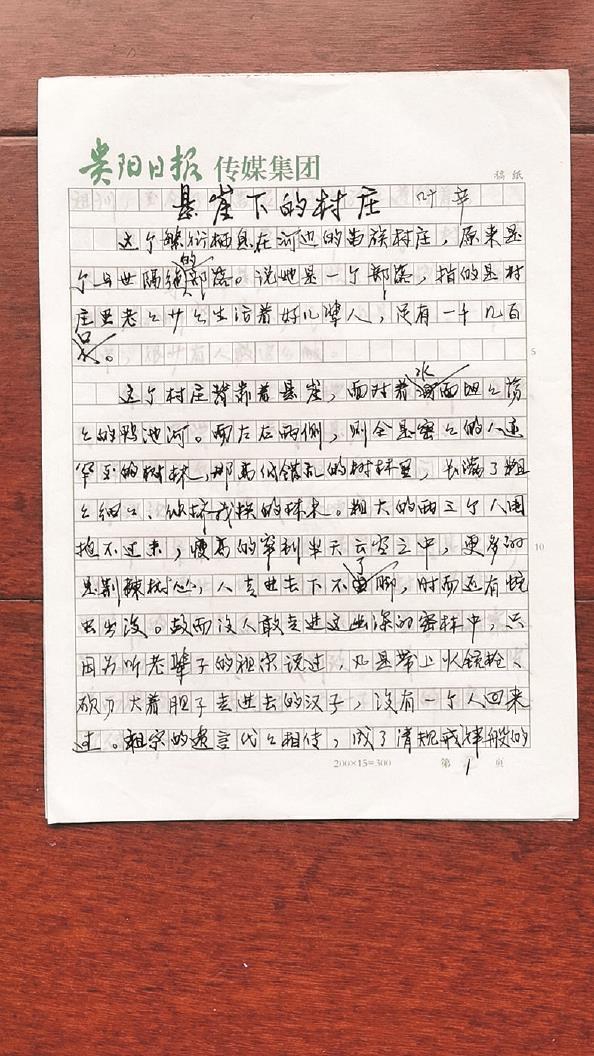 贵阳日报 传媒集团
稿 纸
悬崖下的村庄 叶辛
这个繁衍栖息在河边的苗族村庄，原来是
个与世隔绝的部落。说她是一个部落，指的是村
庄里老老少少生活着好几辈人，总有一千几百
口。
5
这个村庄背靠着悬崖，面对着水面坦坦荡
荡的鸭池河。而左右两侧，则全是密密的人迹
罕至的树林，那高低错乱的树林里，长满了粗
粗细细、歪歪的林木。粗大的两三个人围
抱不过来，瘦高的穿到半天云空之中，更多的
10
是荆棘树丛，人走进去下不了脚，时而还有蛇
虫出没。故而没人敢走进这幽深的密林中，只
因为听老辈子的祖宗说过，凡是带上火铳枪、
砍刀大着胆子走进去的汉子，没有一个人回来
过。祖宗的遗言代代相传，成了清规戒律般的
200×15=300
第 1 页